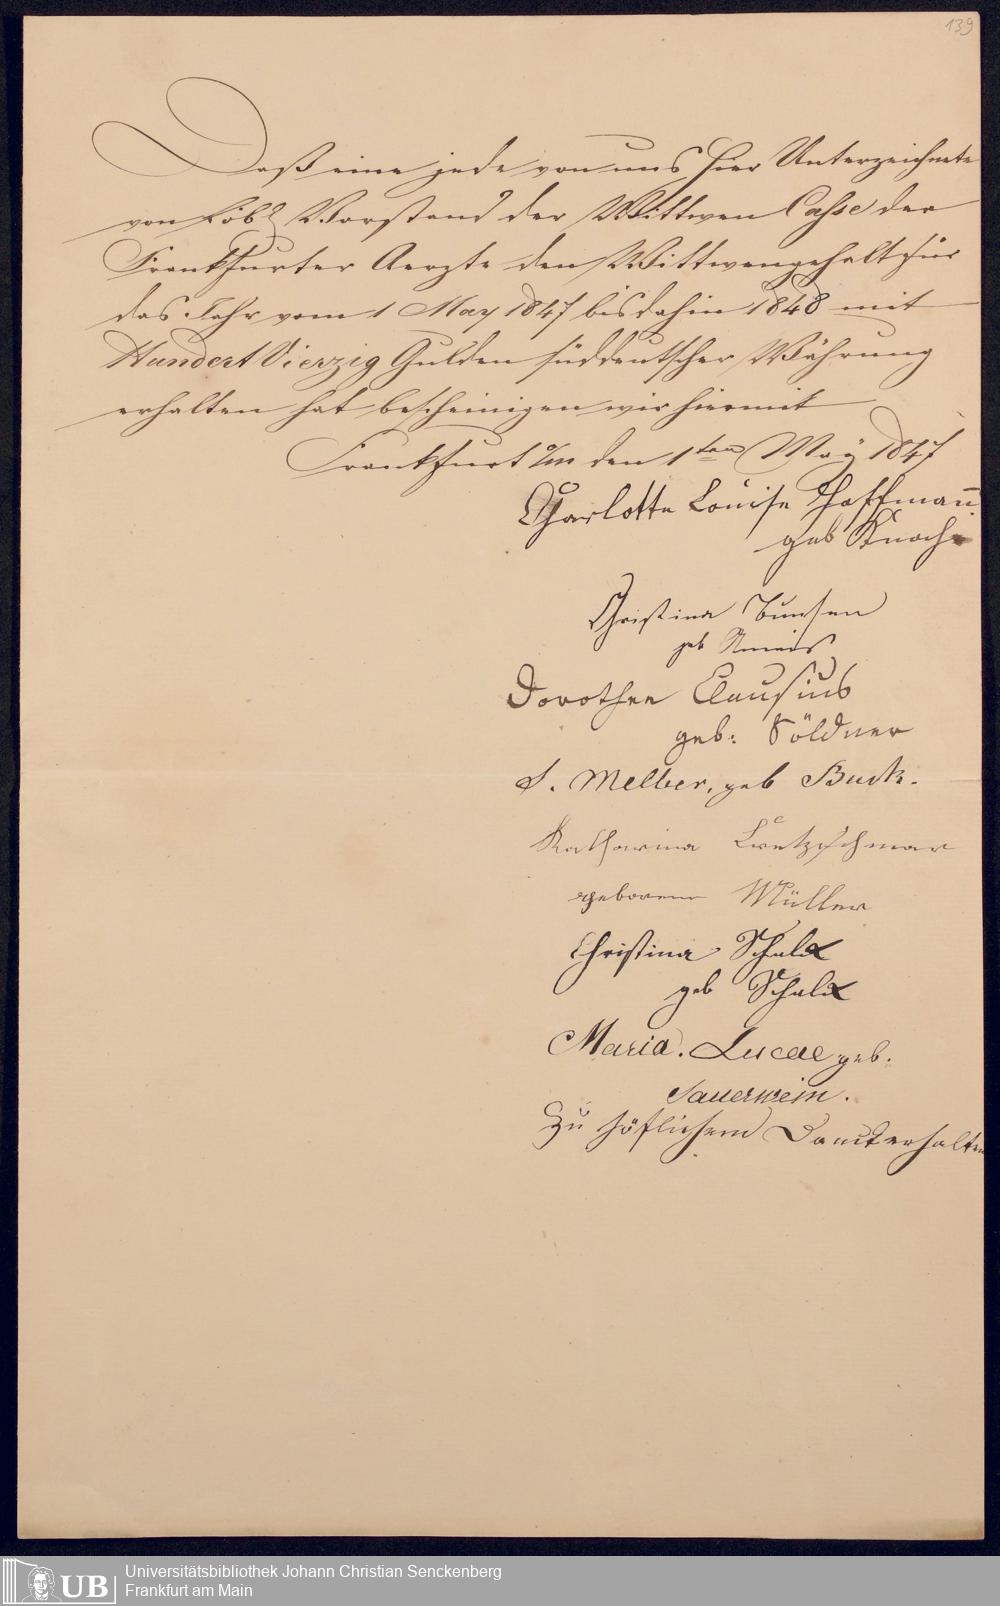 139
Daß eine jede von uns hier Unterzeichnete
von Löbl Vorstand der Wittwen Casse der
Frankfurter Aerzte den Wittwengehalt für
das Jahr vom 1 May 1847 bis dahin 1848 mit
Hundert Vierzig Gulden süddeutscher Währung
erhalten hat bescheinigen wir hiermit
Frankfurt a/m den 1ten May 1847
Charlotte Louise Hoffmann
geb Knoch
Christina Bunsen
geb
Dorothea Clausius
geb: Söldner
S. Melber, geb Buck.
Katharina Kretzschmar
geborene Müller
Christina Schalk
geb Schalk
Maria. Lucae geb.
Sauerwein.
Zu höflichem Dank erhalten
UB
Universitätsbibliothek Johann Christian Senckenberg
Frankfurt am Main